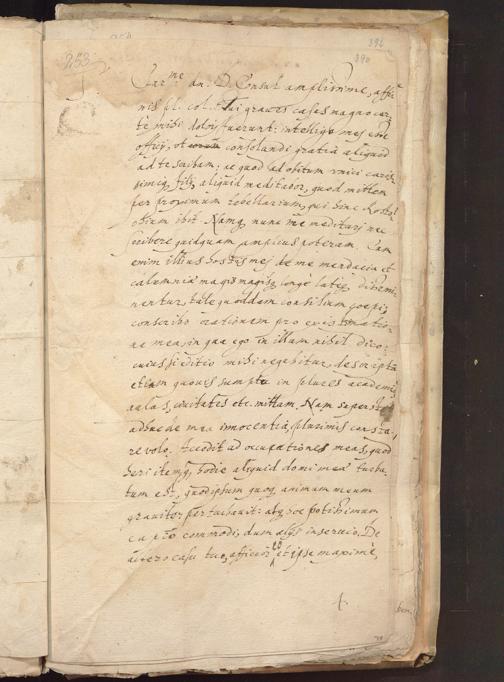 253
394
390
Car.me dn. D. Consul amplissime, affi-
nis pl. col. Tui graves casus magno cer-
te mihi dolori fuerunt: intelligo mei esse
officij, ut eorum consolandi gratia aliquid
ad te scribam: ac quod ad obitum unici caris-
simiq filij aliquid meditabor, quod mittam
per proximum tabellarium, qui hinc Rosto-
chium ibit. Namq nunc me meditari nec
scribere quidquam amplius poteram. Cum
enim illius hostis mei de me mendacia et
calumniae magis magisq longe lateq dissemi-
nentur, tale quoddam consilium coepi,
conscribo orationem pro existimatio-
ne mea, in qua ego in illum nihil dico:
cuius si editio mihi negabitur, descripta
etiam quovis sumptu in plures academi-
as, aulas, civitates etc. mittam. Nam
adhuc de mea innocentia, plurimis consta-
re volo. Accedit ad occupationes meas, quod
heri itemq hodie aliquid domi meae turba-
tum est, quod ipsum quoq animum meum
graviter perturbavit: atq hoc potissimum
dum alijs inservio. De
altero casu tuo, afficior et ipse maxime,